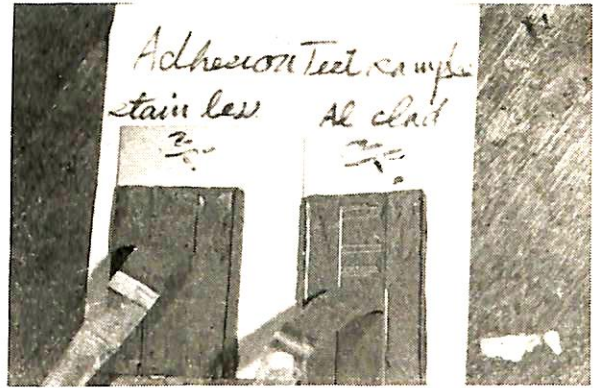 Adhesion Test sample
stainless Al clad